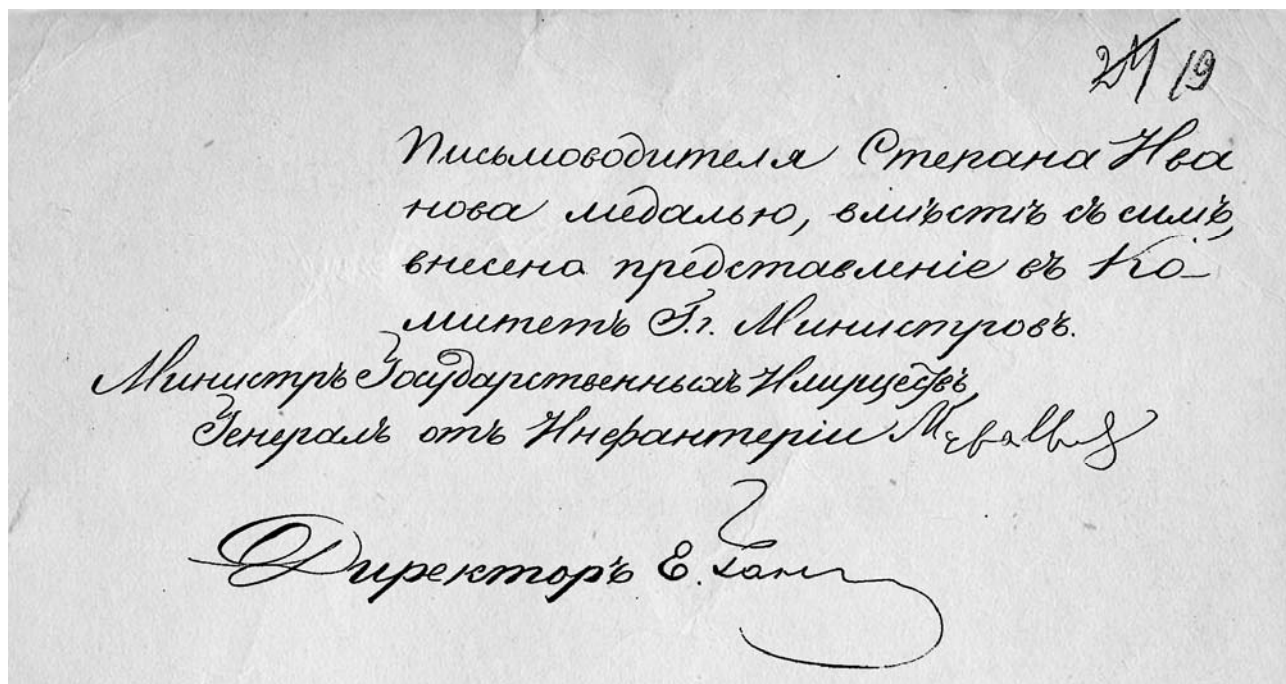 19
Письмоводителя Степана Ива
нова медалью, вмѣстѣ съ симъ,
внесено представленіе въ Ко-
митетъ Г.г. Министровъ.
Министръ Государственныхъ Имуществъ,
Генералъ отъ Инфантеріи Муравьевъ
Директоръ Е. Ган